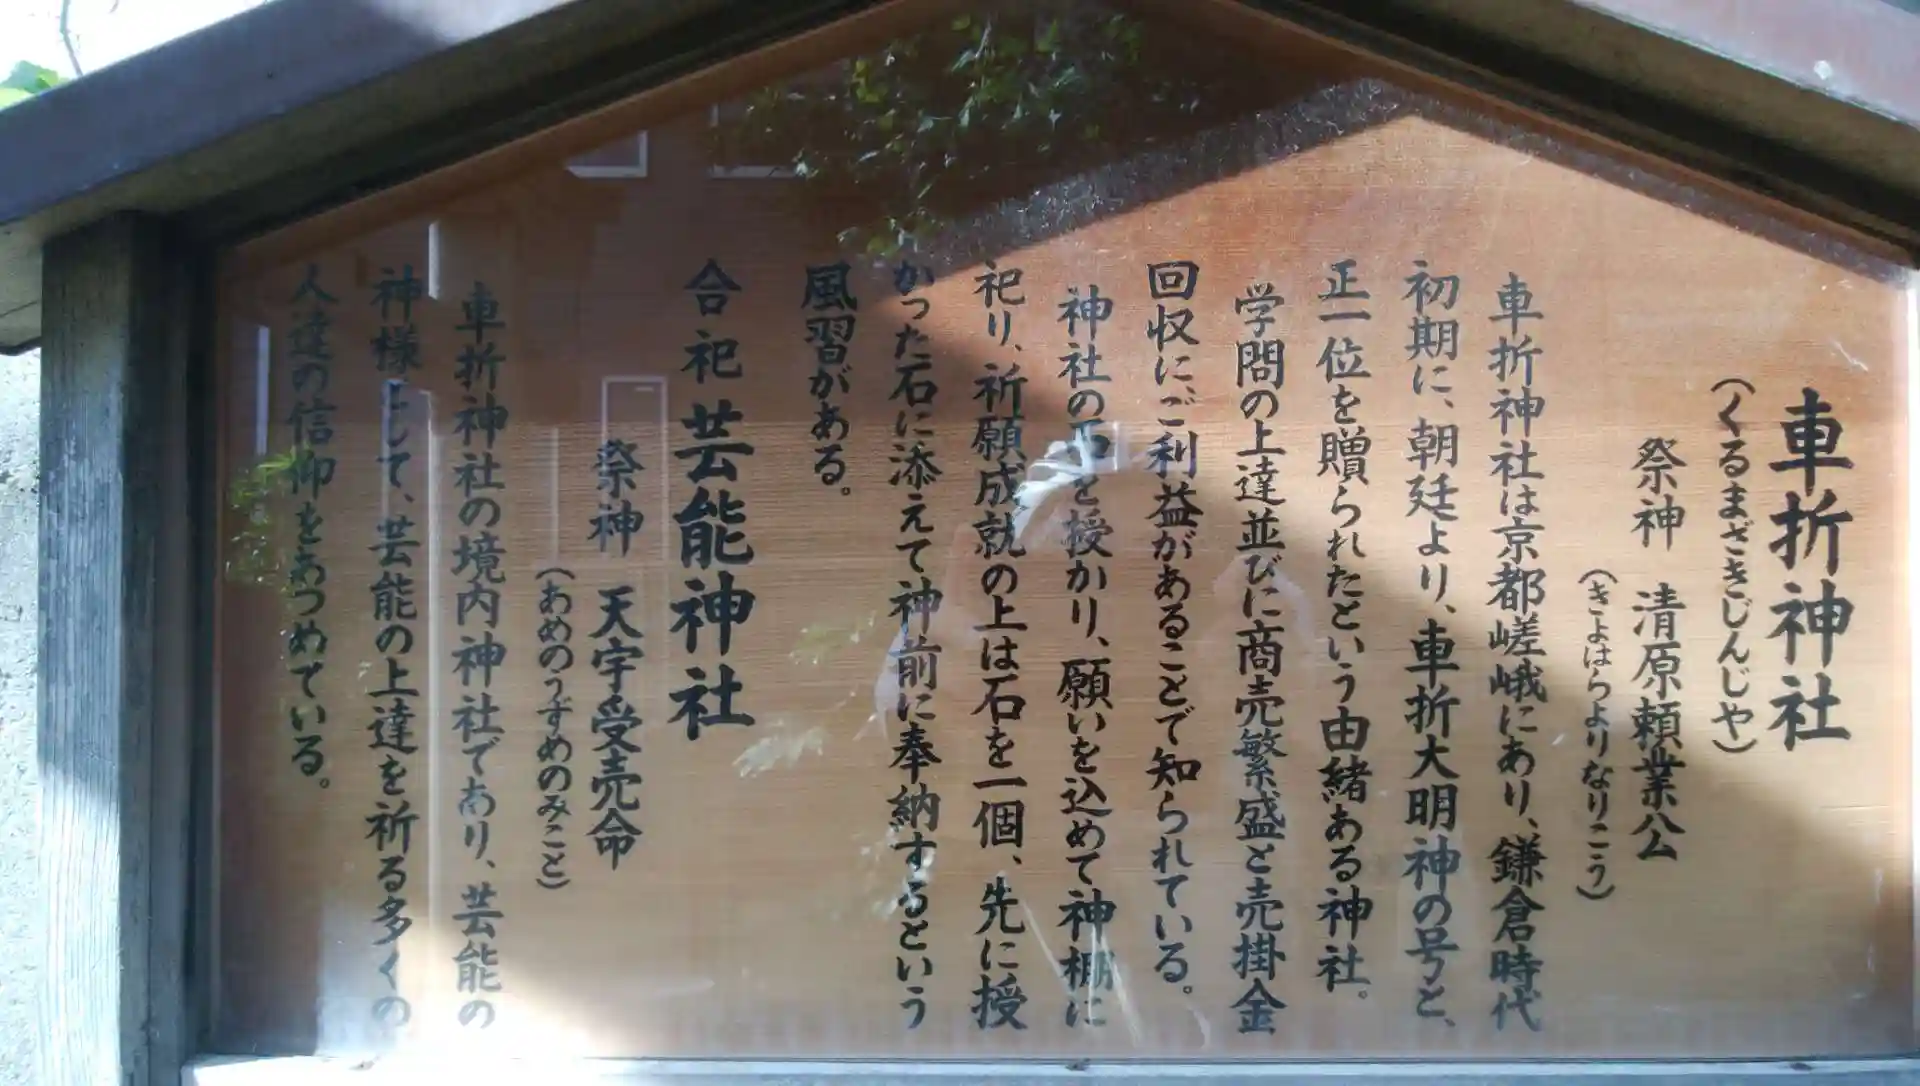 車折神社
(くるまざきじんじや)
祭神 清原頼業公
(きよはらよりなりこう)
車折神社は京都嵯峨にあり、鎌倉時代
初期に、朝廷より、車折大明神の号と、
正一位を贈られたという由緒ある神社。
学問の上達並びに商売繁盛と売掛金
回収に、ご利益があることで知られている。
神社の石を授かり、願いを込めて神棚に
祀り、祈願成就の上は石を一個、先に授
かった石に添えて神前に奉納するという
風習がある。
合祀 芸能神社
祭神 天宇受売命
(あめのうずめのみこと)
車折神社の境内神社であり、芸能の
神様として、芸能の上達を祈る多くの
人達の信仰をあつめている。